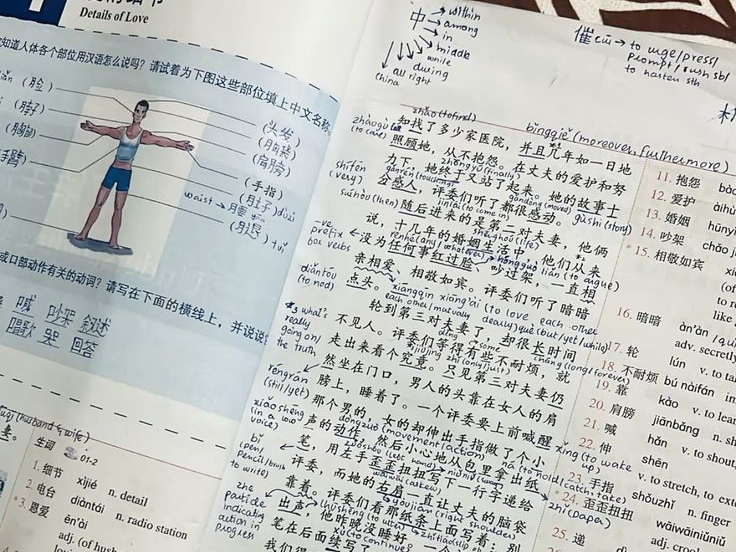 Details of Love
知道人体各个部位用汉语怎么说吗？请试着为下图这些部位填上中文名称
(脸)
(脖子)
(胸部)
(头发)
(脑袋)
(肩膀)
(手指)
(肚子) dùzi
waist → 腰 yāo
(腿) tuǐ
或口部动作有关的动词？请写在下面的横线上，并说说
喊 吵架
唱歌 哭 回答
(husband & wife)
生词 01-2
1. 细节 xìjié n. detail
2. 电台 diàntái n. radio station
3. 恩爱 ēn'ài
adj. (of husb
中 → within
→ among
in
middle
while
during
all right
China
催 cuī → to urge/press/
prompt/rush sb/
to hasten sth
zhǎo (to find)
bìngqiě (moreover, furthermore)
知找了多少家医院，并且几年如一日地
zhàogù
(to care)
照顾她，从不抱怨。在丈夫的爱护和努
zhōngyú (finally)
力下，她终于又站了起来。她的故事十
shífēn
(very)
gǎnrén (touching)
gǎndòng (moved)
gùshi (story)
分感人，评委们听了都很感动。
suíhòu (then)
jìnlái (to come in)
随后进来的是第二对夫妻，他俩
shēnghuó (life)
说，十几年的婚姻生活中，他们从来
-ve
prefix
for verbs
没为任何事红过脸，吵过架，一直相
亲相爱，相敬如宾。评委们听了暗暗
diǎntóu
(to nod)
点头。
xiāngqīn xiāng'ài (to love each other
each other/mutually dearly)
què (but/yet/while)
轮到第三对夫妻了，却很长时间
what's
really
going on/
the truth
不见人。评委们等得有些不耐烦，就
走出来看个究竟。只见第三对夫妻仍
réngrán
(still/yet)
然坐在门口，男人的头靠在女人的肩
膀上，睡着了。一个评委要上前喊醒
xǐng (to wake up)
xiǎoshēng
(in a low
voice)
那个男的，女的却伸出手指做了个小
dòngzuò (movement/action)
声的动作，然后小心地从包里拿出纸
zhǐ (paper)
bǐ
(pen/
pencil/brush
to write)
笔，用左手歪歪扭扭写下一行字递给
评委，而她的右肩一直让丈夫的脑袋
the
particle
indicating
action in
progress
靠着。评委们看那纸条上面写着：别
出声，他昨晚没睡好。
笔在后面续写了
11. 抱怨
12. 爱护 àihù
13. 婚姻 hūnyīn
14. 吵架 chǎo jià
15. 相敬如宾
16. 暗暗 àn'àn
adv. secretly
17. 轮 lún v. to
18. 不耐烦 bú nàifán
19. 靠 kào v. to lean
20. 肩膀 jiānbǎng n. sh
21. 喊 hǎn v. to shout,
22. 伸 shēn
v. to stretch, to ext
23. 手指 shǒuzhǐ n. finger
24. 歪歪扭扭 wāiwāiniǔniǔ
adj.
25. 递